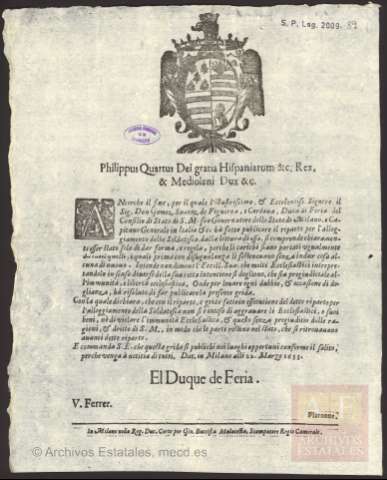 S. P. Leg. 2009. 89
Philippus Quartus Dei gratia Hispaniarum &c. Rex,
& Mediolani Dux &c.
ANcorche il fine, per il quale l'Illustrissimo, & Eccellentiss. Signore il
Sig. Don Gomez, Suarez, de Figueroa, e Cordoua, Duca di Feria del
Consiglio di Stato di S. M. suo Gouernatore dello Stato di Milano, e Ca-
pitano Generale in Italia &c. hà fatto publicare il reparto per l'alleg-
giamento della Soldatesca dalla lettura di esso, si comprende chiaramen-
te esser stato solo di dar forma, e regola, perche li carichi siano portati ugualmente
da tutti quelli, i quali prima con disuguaglianza li sosteneuano senza indur cosa al-
cuna di nuouo. Intende nondimeno l'Eccell. Sua, che molti Ecclesiastici interpre-
tando in senso diuerso della sua retta intentione si dogliono, che sia pregiudiciale al-
l'immunità, e libertà ecclesiastica. Onde per leuare ogni dubbio, & occasione di do-
glianza, hà risoluto di far publicar la presente grida.
Con la quale dichiara, che con il reparto, e gride fatte in essecutione del detto reparto per
l'alleggiamento della Soldatesca non s'è inteso di aggrauare li Ecclesiastici, o suoi
beni, nè di violare l'immunità Ecclesiastica, & quello senza pregiudicio delle ra-
gioni, & dritto di S. M., in modo che le parti restino nel stato, che si ritrouauano
auanti detto reparto.
E commanda S. E. che questa grida si publichi nei luoghi opportuni conforme il solito,
perche venga à notitia di tutti. Dat. in Milano alli 22. Marzo 1633.
El Duque de Feria.
V. Ferrer.
Platonus.
In Milano nella Reg. Duc. Corte per Gio. Battista Malatesta, Stampatore Regio Camerale.
ARCHIVOS
ESTATALES
© Archivos Estatales, mecd.es